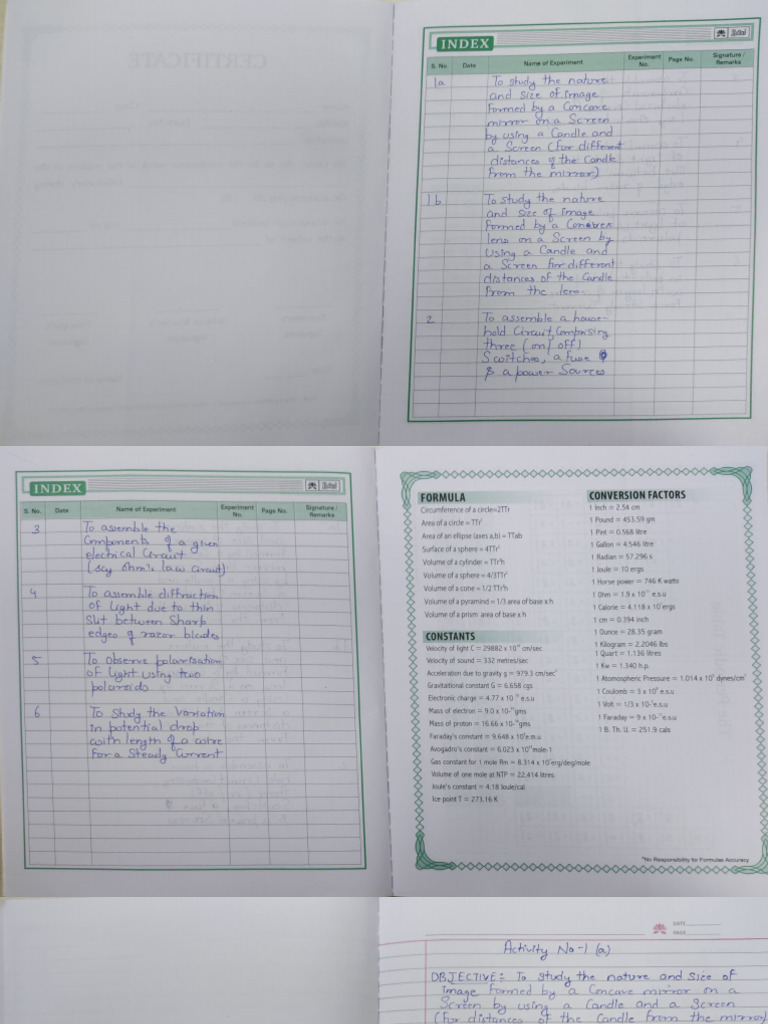 CERTIFICATE
INDEX
S. No. Date Name of Experiment Experiment No. Page No. Signature / Remarks
1a To study the nature
and size of image
formed by a Concave
mirror on a Screen
by using a Candle and
a Screen (for different
distances of the Candle
from the mirror)
1b To study the nature
and size of image
formed by a Convex
lens on a Screen by
Using a Candle and
a Screen for different
distances of the Candle
from the lens.
2 To assemble a house-
hold Circuit, Comprising
three (on/off)
Switches, a fuse
& a power Sources
INDEX
S. No. Date Name of Experiment Experiment No. Page No. Signature / Remarks
3 To assemble the
Components of a given
electrical Circuit
(say ohm's law circuit)
4 To assemble diffraction
of Light due to thin
Slit between Sharp
edges of razor blades
5 To observe polarisation
of Light using two
polaroids
6 To Study the Variation
in potential drop
with length of a wire
For a Steady Current
FORMULA
Circumference of a circle=2TTr
Area of a circle = TTr²
Area of an ellipse (axes a,b) = TTab
Surface of a sphere = 4TTr²
Volume of a cylinder = TTr²h
Volume of a sphere = 4/3TTr³
Volume of a cone = 1/2 TTr²h
Volume of a pyramind = 1/3 area of base x h
Volume of a prism area of base x h
CONSTANTS
Velocity of light C = 29882 x 10 cm/sec
Velocity of sound = 332 metres/sec
Acceleration due to gravity g = 979.3 cm/sec²
Gravitational constant G = 6.658 cgs
Electronic charge = 4.77 x 10 e.s.u
Mass of electron = 9.0 x 10 gms
Mass of proton = 16.66 x 10 gms
Faraday's constant = 9.648 x 10 e.m.u
Avogadro's constant = 6.023 x 10 mole-1
Gas constant for 1 mole Rm = 8.314 x 10 erg/deg/mole
Volume of one mole at NTP = 22.414 litres
Joule's constant = 4.18 Joule/cal
Ice point T = 273.16 K
CONVERSION FACTORS
1 Inch = 2.54 cm
1 Pound = 453.59 gm
1 Pint = 0.568 litre
1 Gallon = 4.546 litre
1 Radian = 57.296 s
1 Joule = 10 ergs
1 Horse power = 746 K watts
1 Ohm = 1.9 x 10 e.s.u
1 Calorie = 4.118 x 10 ergs
1 cm = 0.394 inch
1 Ounce = 28.35 gram
1 Kilogram = 2.2046 lbs
1 Quart = 1.136 litres
1 Kw = 1.340 h.p.
1 Atomospheric Pressure = 1.014 x 10 dynes/cm²
1 Coulomb = 3 x 10 e.s.u
1 Volt = 1/3 x 10 e.s.u
1 Faraday = 9 x 10 e.s.u
1 B. Th. U. = 251.9 cals
*No Responsibility for Formulae Accuracy
DATE
PAGE
Activity No-1 (a)
OBJECTIVE: To study the nature and size of
image formed by a Concave mirror on a
Screen by using a Candle and a Screen
(for distances of the Candle from the mirror)